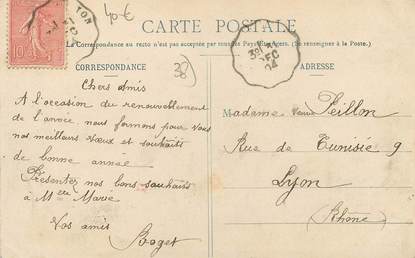 TON
40€
10
CARTE POSTALE
La Correspondance au recto n'est pas acceptée par tous les Pays Etrangers. (Se renseigner à la Poste.)
CORRESPONDANCE
ADRESSE
38
DEC
04
Chers Amis
A l'occasion du renouvellement
de l'année, nous formons pour vous
nos meilleurs Vœux et souhaits
de bonne année
Présentez nos bons souhaits
à Melle Marie
Vos amis
Boget
Madame Veuve Peillon
Rue de Tunisie 9
Lyon
(Rhône)